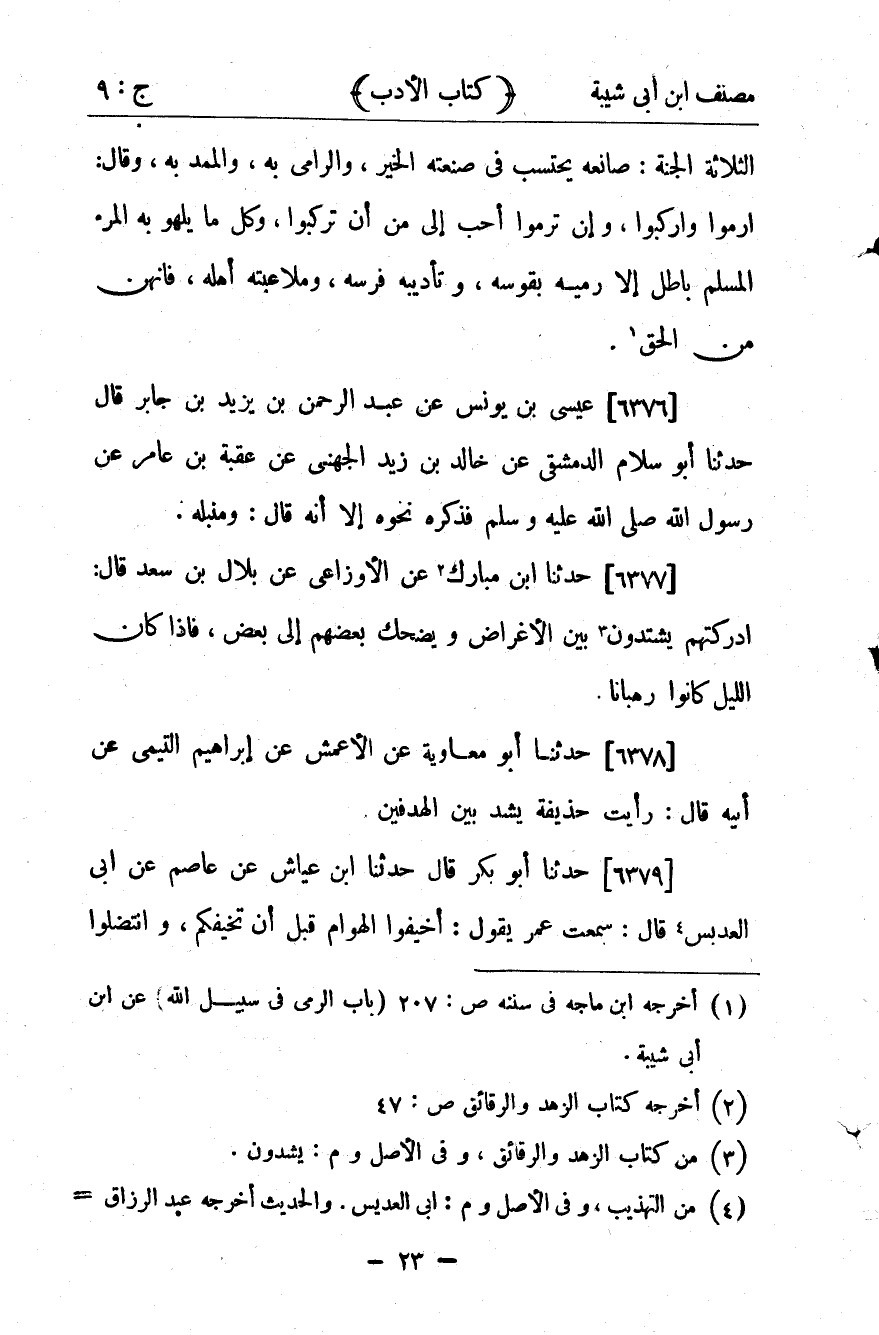 مصنف ابن أبى شيبة ﴿ كتاب الأدب ﴾ ج : ٩
الثلاثة الجنة : صانعه يحتسب فى صنعته الخير ، والرامى به ، والممد به ، وقال:
ارموا واركبوا ، و إن ترموا أحب إلى من أن تركبوا ، وكل ما يلهو به المرء
المسلم باطل إلا رميه بقوسه ، و تأديبه فرسه ، وملاعبته أهله ، فانهن
من الحق١ .
[٦٣٧٦] عيسى بن يونس عن عبد الرحمن بن يزيد بن جابر قال
حدثنا أبو سلام الدمشقى عن خالد بن زيد الجهنى عن عقبة بن عامر عن
رسول الله صلى الله عليه و سلم فذكره نحوه إلا أنه قال : ومنبله .
[٦٣٧٧] حدثنا ابن مبارك٢ عن الأوزاعى عن بلال بن سعد قال:
ادركتهم يشتدون٣ بين الأغراض و يضحك بعضهم إلى بعض ، فاذا كان
الليل كانوا رهبانا .
[٦٣٧٨] حدثنا أبو معاوية عن الأعمش عن إبراهيم التيمى عن
أبيه قال : رأيت حذيفة يشد بين الهدفين .
[٦٣٧٩] حدثنا أبو بكر قال حدثنا ابن عياش عن عاصم عن ابى
العدبس٤ قال : سمعت عمر يقول : أخيفوا الهوام قبل أن تخيفكم ، و انتضلوا
(١) أخرجه ابن ماجه فى سننه ص : ٢٠٧ (باب الرمى فى سبيل الله) عن ابن
أبى شيبة .
(٢) أخرجه كتاب الزهد والرقائق ص : ٤٧
(٣) من كتاب الزهد والرقائق ، و فى الأصل و م : يشدون .
(٤) من التهذيب ، و فى الأصل و م : ابى العديس . والحديث أخرجه عبد الرزاق =
– ٢٣ –